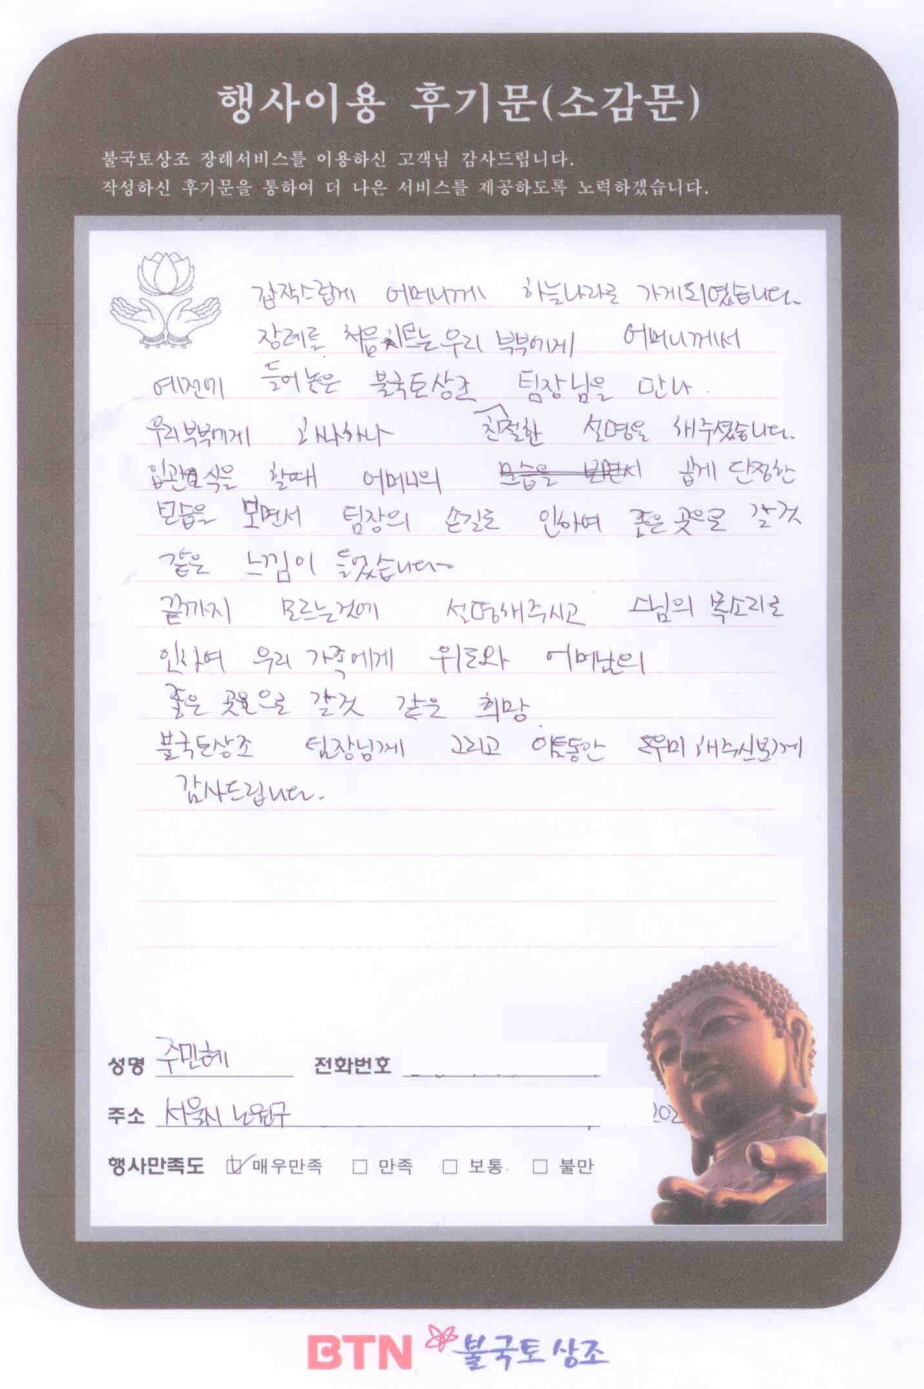 행사이용 후기문(소감문)
불국토상조 장례서비스를 이용하신 고객님 감사드립니다.
작성하신 후기문을 통하여 더 나은 서비스를 제공하도록 노력하겠습니다.
갑작스럽게 어머니께 하늘나라로 가게되였습니다.
장례를 처음 치르는 우리 부부에게 어머니께서
예전에 들어놓은 불국토상조 팀장님을 만나
우리부부에게 하나하나 친절한 설명을 해주셨습니다.
입관식을 할때 어머니의 곱게 단정한
모습을 보면서 팀장의 손길로 인하여 좋은 곳으로 갈것
같은 느낌이 들었습니다
끝까지 모르는것에 설명해주시고 스님의 목소리로
인하여 우리 가족에게 위로와 어머님의
좋은 곳으로 갈것 같은 희망
불국토상조 팀장님께 그리고 이틀동안 해주신분께
감사드립니다.
성명 주민혜 전화번호
주소 서울시 노원구 202
행사만족도 ☑ 매우만족 □ 만족 □ 보통 □ 불만
BTN 불국토상조